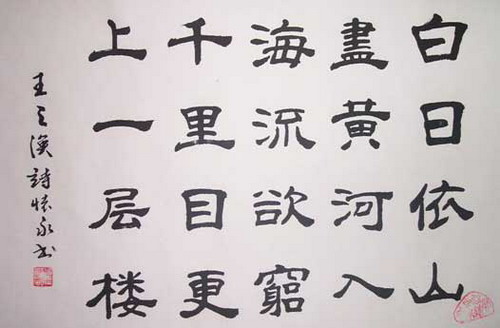 白日依山
盡黃河入
海流欲窮
千里目更
上一层楼
王之渙詩懷永书